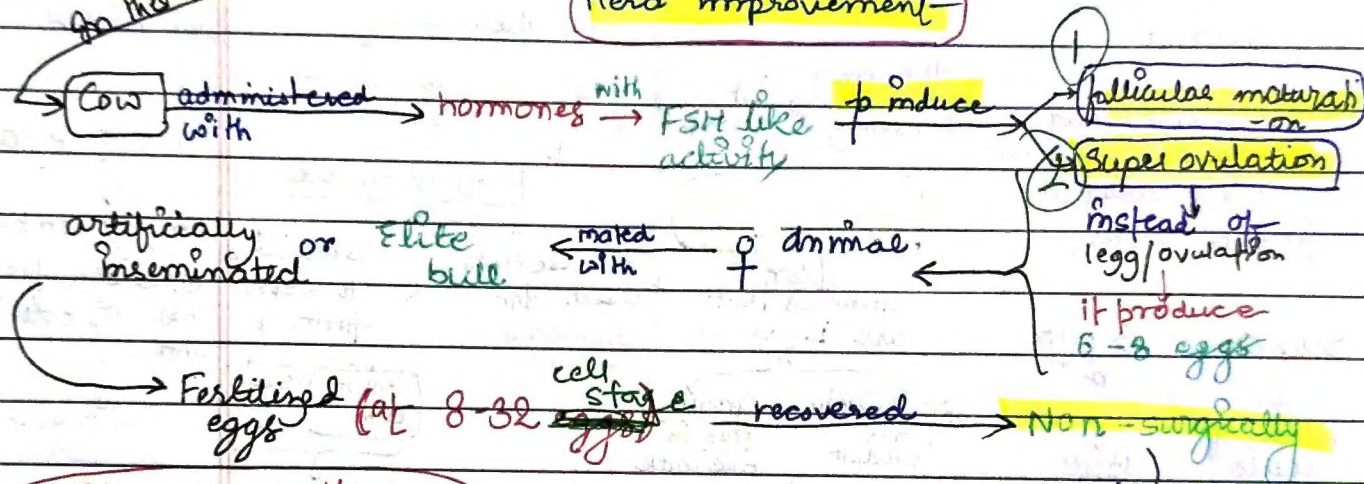 Herd improvement
Cow administered with hormones with FSH like activity to induce
1 folliculae maturati
-on
2 Super ovulation
instead of
1egg/ovulation
it produce
6-8 eggs
artificially inseminated or Elite bull mated with ♀ animal.
Fertilized eggs (at 8-32 cell stage recovered Non-surgically